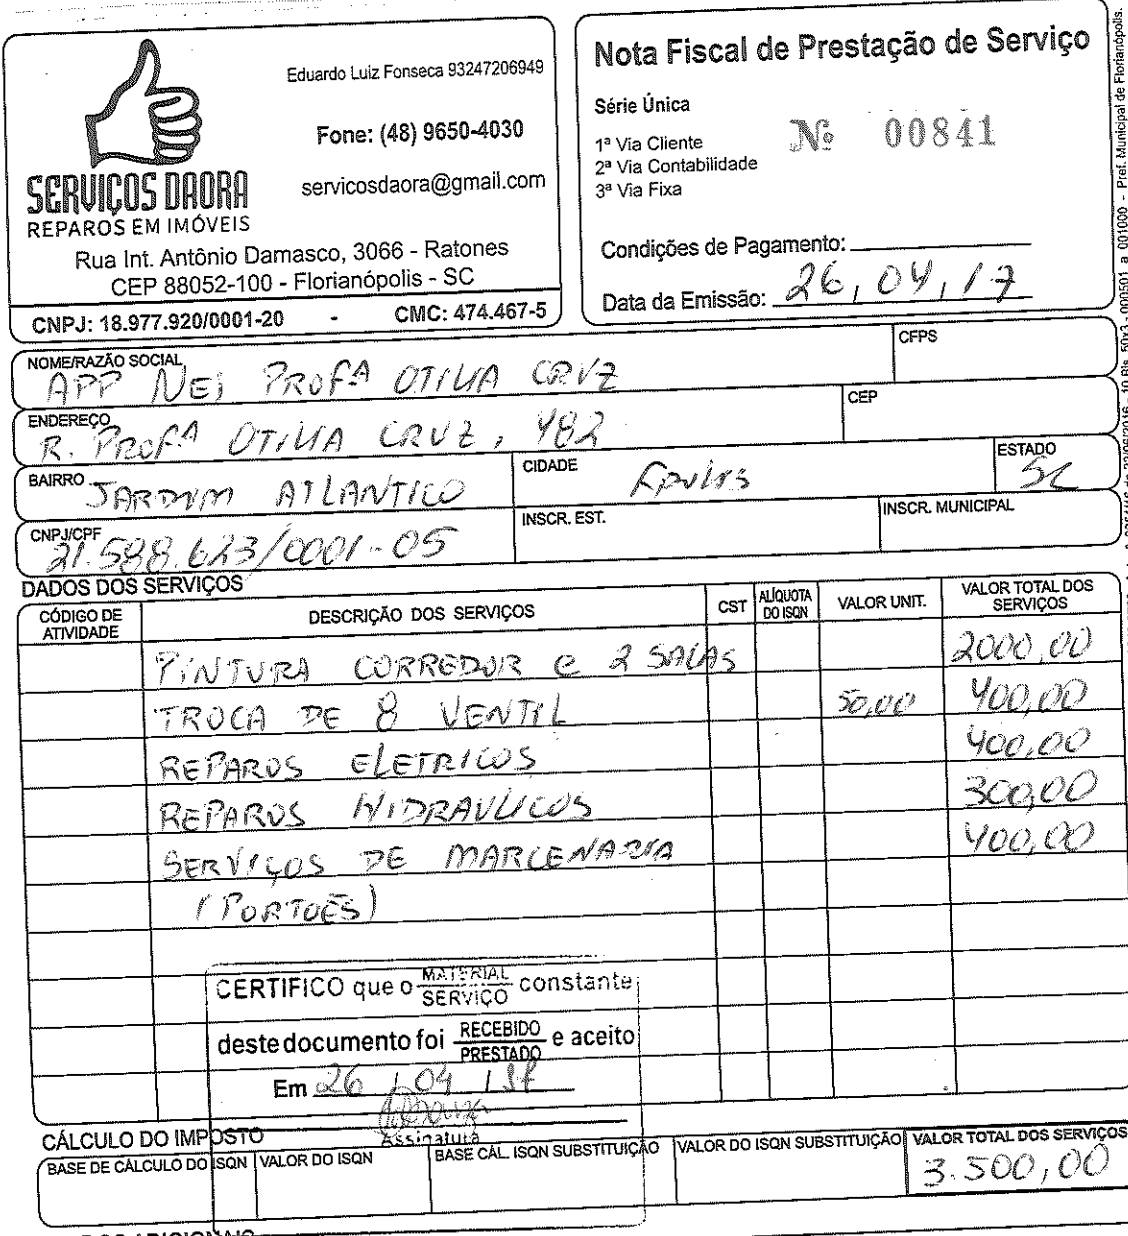 Eduardo Luiz Fonseca 93247206949
Fone: (48) 9650-4030
servicosdaora@gmail.com
SERVIÇOS DAORA
REPAROS EM IMÓVEIS
Rua Int. Antônio Damasco, 3066 - Ratones
CEP 88052-100 - Florianópolis - SC
CNPJ: 18.977.920/0001-20 - CMC: 474.467-5
Nota Fiscal de Prestação de Serviço
Série Única
1ª Via Cliente
2ª Via Contabilidade
3ª Via Fixa
Nº 00841
Condições de Pagamento:
Data da Emissão: 26, 04, 17
NOME/RAZÃO SOCIAL APP NEI PROFA OTILIA CRUZ
CFPS
ENDEREÇO R. PROFA OTILIA CRUZ, 482
CEP
BAIRRO JARDIM ATLANTICO
CIDADE Fpolis
ESTADO SC
CNPJ/CPF 21.588.623/0001-05
INSCR. EST.
INSCR. MUNICIPAL
DADOS DOS SERVIÇOS
CÓDIGO DE ATIVIDADE DESCRIÇÃO DOS SERVIÇOS CST ALÍQUOTA DO ISQN VALOR UNIT. VALOR TOTAL DOS SERVIÇOS
PINTURA CORREDOR e 2 SALAS 2000,00
TROCA DE 8 VENTIL 50,00 400,00
REPAROS ELETRICOS 400,00
REPAROS HIDRAULICOS 300,00
SERVIÇOS DE MARCENARIA 400,00
(PORTOES)
CERTIFICO que o MATERIAL SERVIÇO constante
deste documento foi RECEBIDO PRESTADO e aceito
Em 26 / 04 / 17
Assinatura
CÁLCULO DO IMPOSTO
BASE DE CÁLCULO DO ISQN VALOR DO ISQN BASE CÁL. ISQN SUBSTITUIÇÃO VALOR DO ISQN SUBSTITUIÇÃO VALOR TOTAL DOS SERVIÇOS
3.500,00
00501 a 001000 - Pref. Municipal de Florianópolis.